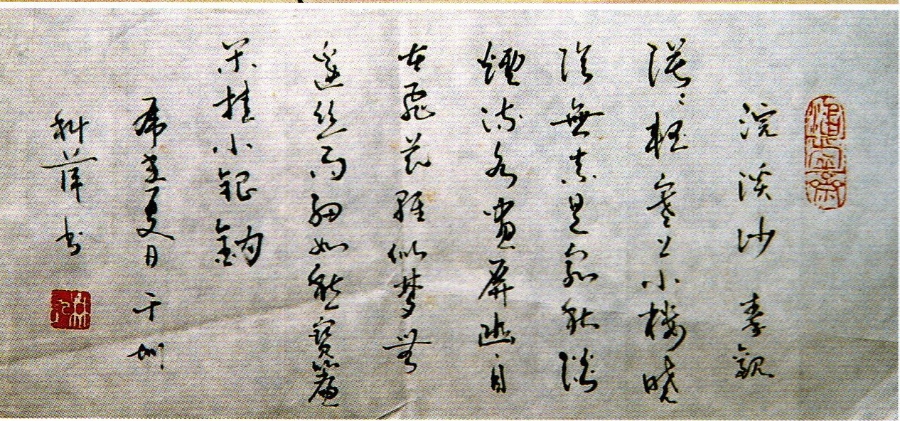 浣溪沙 秦觀
漠々輕寒上小樓曉
陰無賴是窮秋淡
煙流水畫屏幽自
在飛花輕似夢無
邊絲雨細如愁寶簾
閒掛小銀鉤
夏日 于
書